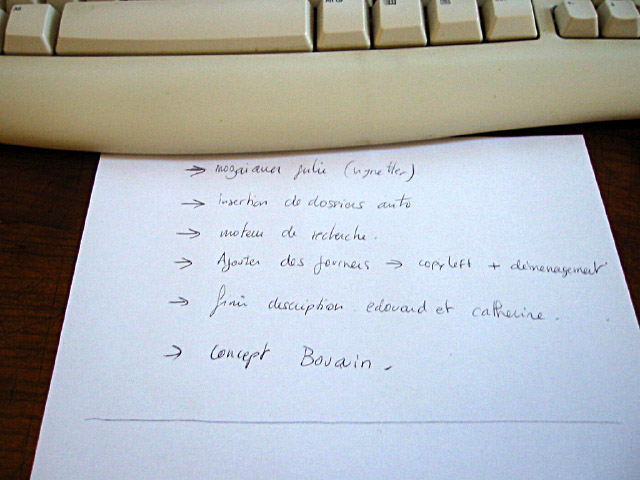 → mozaiques julie (vignettes)
→ insertion de dossiers auto
→ moteur de recherche.
→ Ajouter des → copyleft + déménagement
→ finir description edouard et catherine.
→ concept Bouvain.